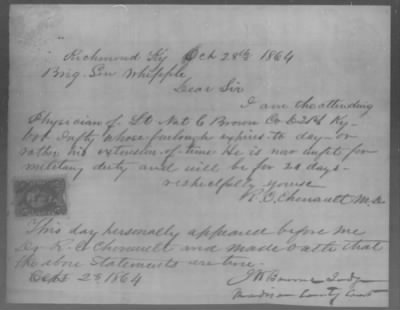 Richmond Ky Oct 28th 1864
Brig. Gen Whipple
Dear Sir
I am the attending
Physician of Lt Nat C Brown Co E 21st Ky
Vol Infty whose furlough expires to day - or
rather his extension of time He is now unfit for
military duty and will be for 20 days -
respectfully yours
R. C. Chenault M.D.
This day personally appeared before me
Dr R. C. Chenault and made oath that
the above statements are true.
Oct 28 1864
Judge
Madison County Court